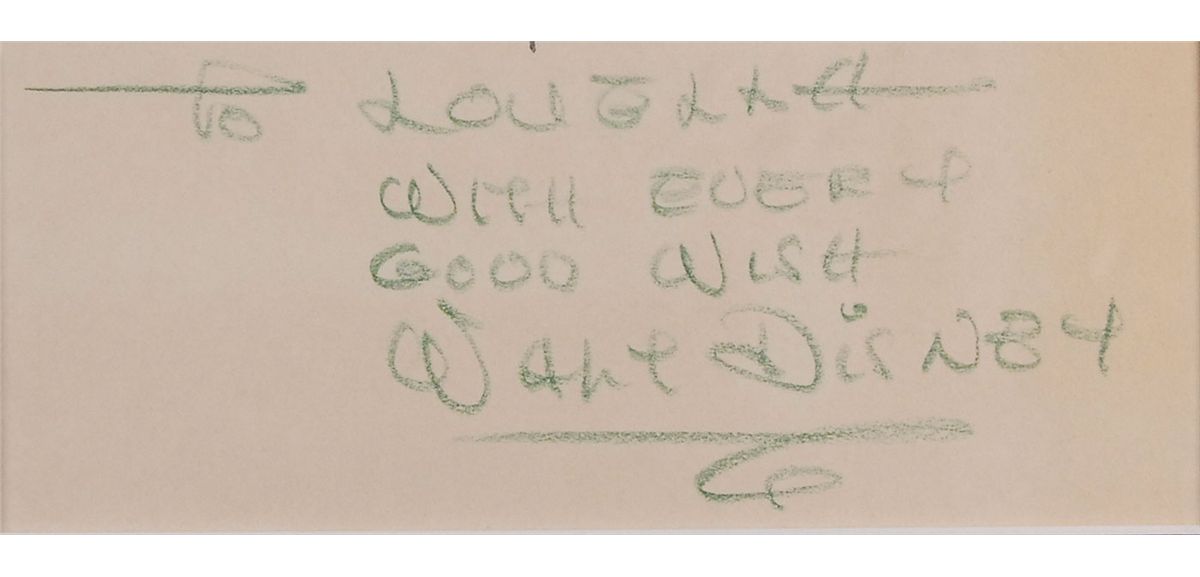 TO LOUELLA
WITH EVERY
GOOD WISH
WALT DISNEY